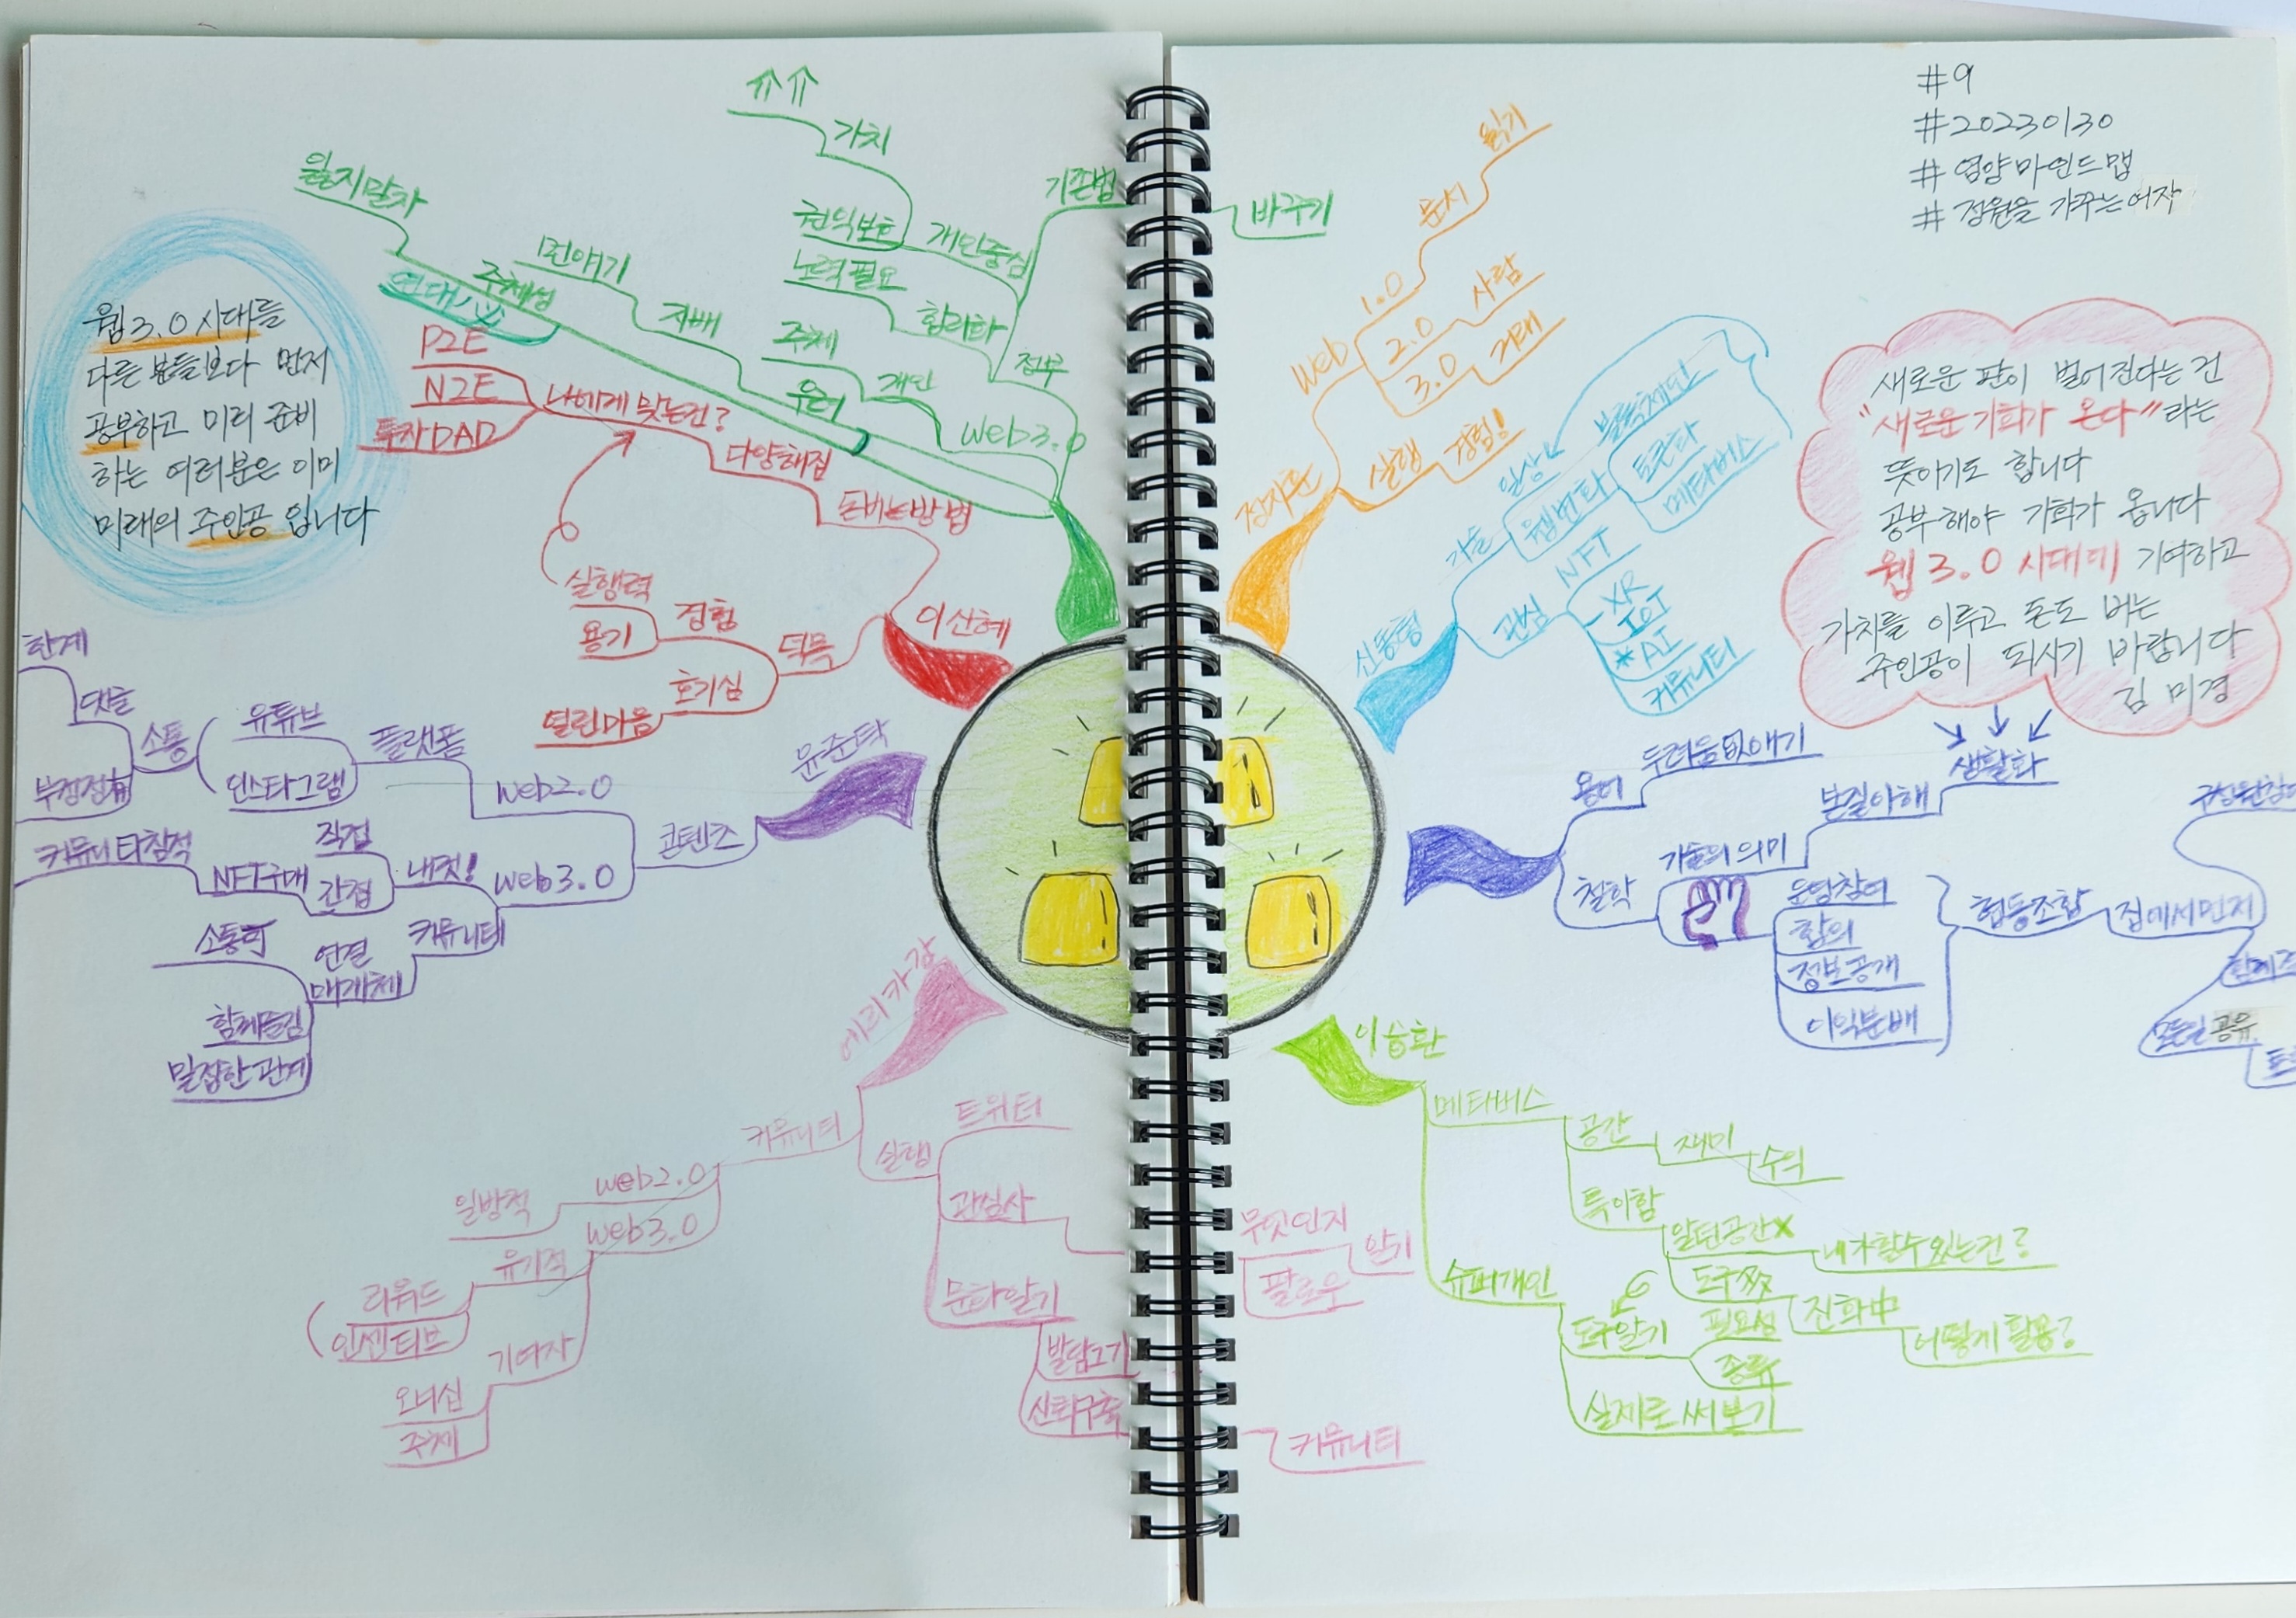 #9
#20230130
#영양마인드맵
#정원을 가꾸는여자
웹3.0 시대를
다른 분들보다 먼저
공부하고 미리 준비
하는 여러분은 이미
미래의 주인공 입니다
새로운 판이 벌어진다는 건
"새로운 기회가 온다"라는
뜻이기도 합니다
공부해야 기회가 옵니다
웹 3.0 시대에 기여하고
가치를 이루고 돈도 버는
주인공이 되시기 바랍니다
김미경
정지훈
Web
1.0
문서
읽기
2.0
사람
3.0
거래
실행
경험!
신동형
기술
일상
웹변화
블록체인
토큰화
메타버스
관심
NFT
XR
IOT
*AI
커뮤니티
용어
두려움없애기
철학
기술의 의미
본질이해
생활화
운영참여
합의
정보공개
이익분배
협동조합
집에서먼저
모든일 공유
이승환
메타버스
공간
재미
수익
특이함
알던공간X
내가할수있는건?
도구
진화中
어떻게 활용?
슈퍼개인
도구알기
필요성
종류
실제로 써보기
에리카강
커뮤니티
web2.0
일방적
web3.0
유기적
리워드
인센티브
기여자
오너십
주체
실행
트위터
관심사
무엇인지
알기
팔로우
문화알기
발담그기
신뢰구축
커뮤니티
윤준탁
콘텐츠
web2.0
플랫폼
유튜브
인스타그램
소통
댓글
한계
web3.0
내것!
직접
간접
NFT구매
커뮤니티참석
커뮤니티
연결
매개체
소통
함께즐김
밀접한관계
이신혜
돈버는방법
다양해짐
나에게 맞는건?
P2E
N2E
투자DAO
덕목
경험
실행력
용기
호기심
열린마음
web3.0
정부
기존법
바꾸기
개인중심
권익보호
가치
⇑⇑
합리화
노력필요
개인
주체
유저
지배
주체성
잃지말자
연대